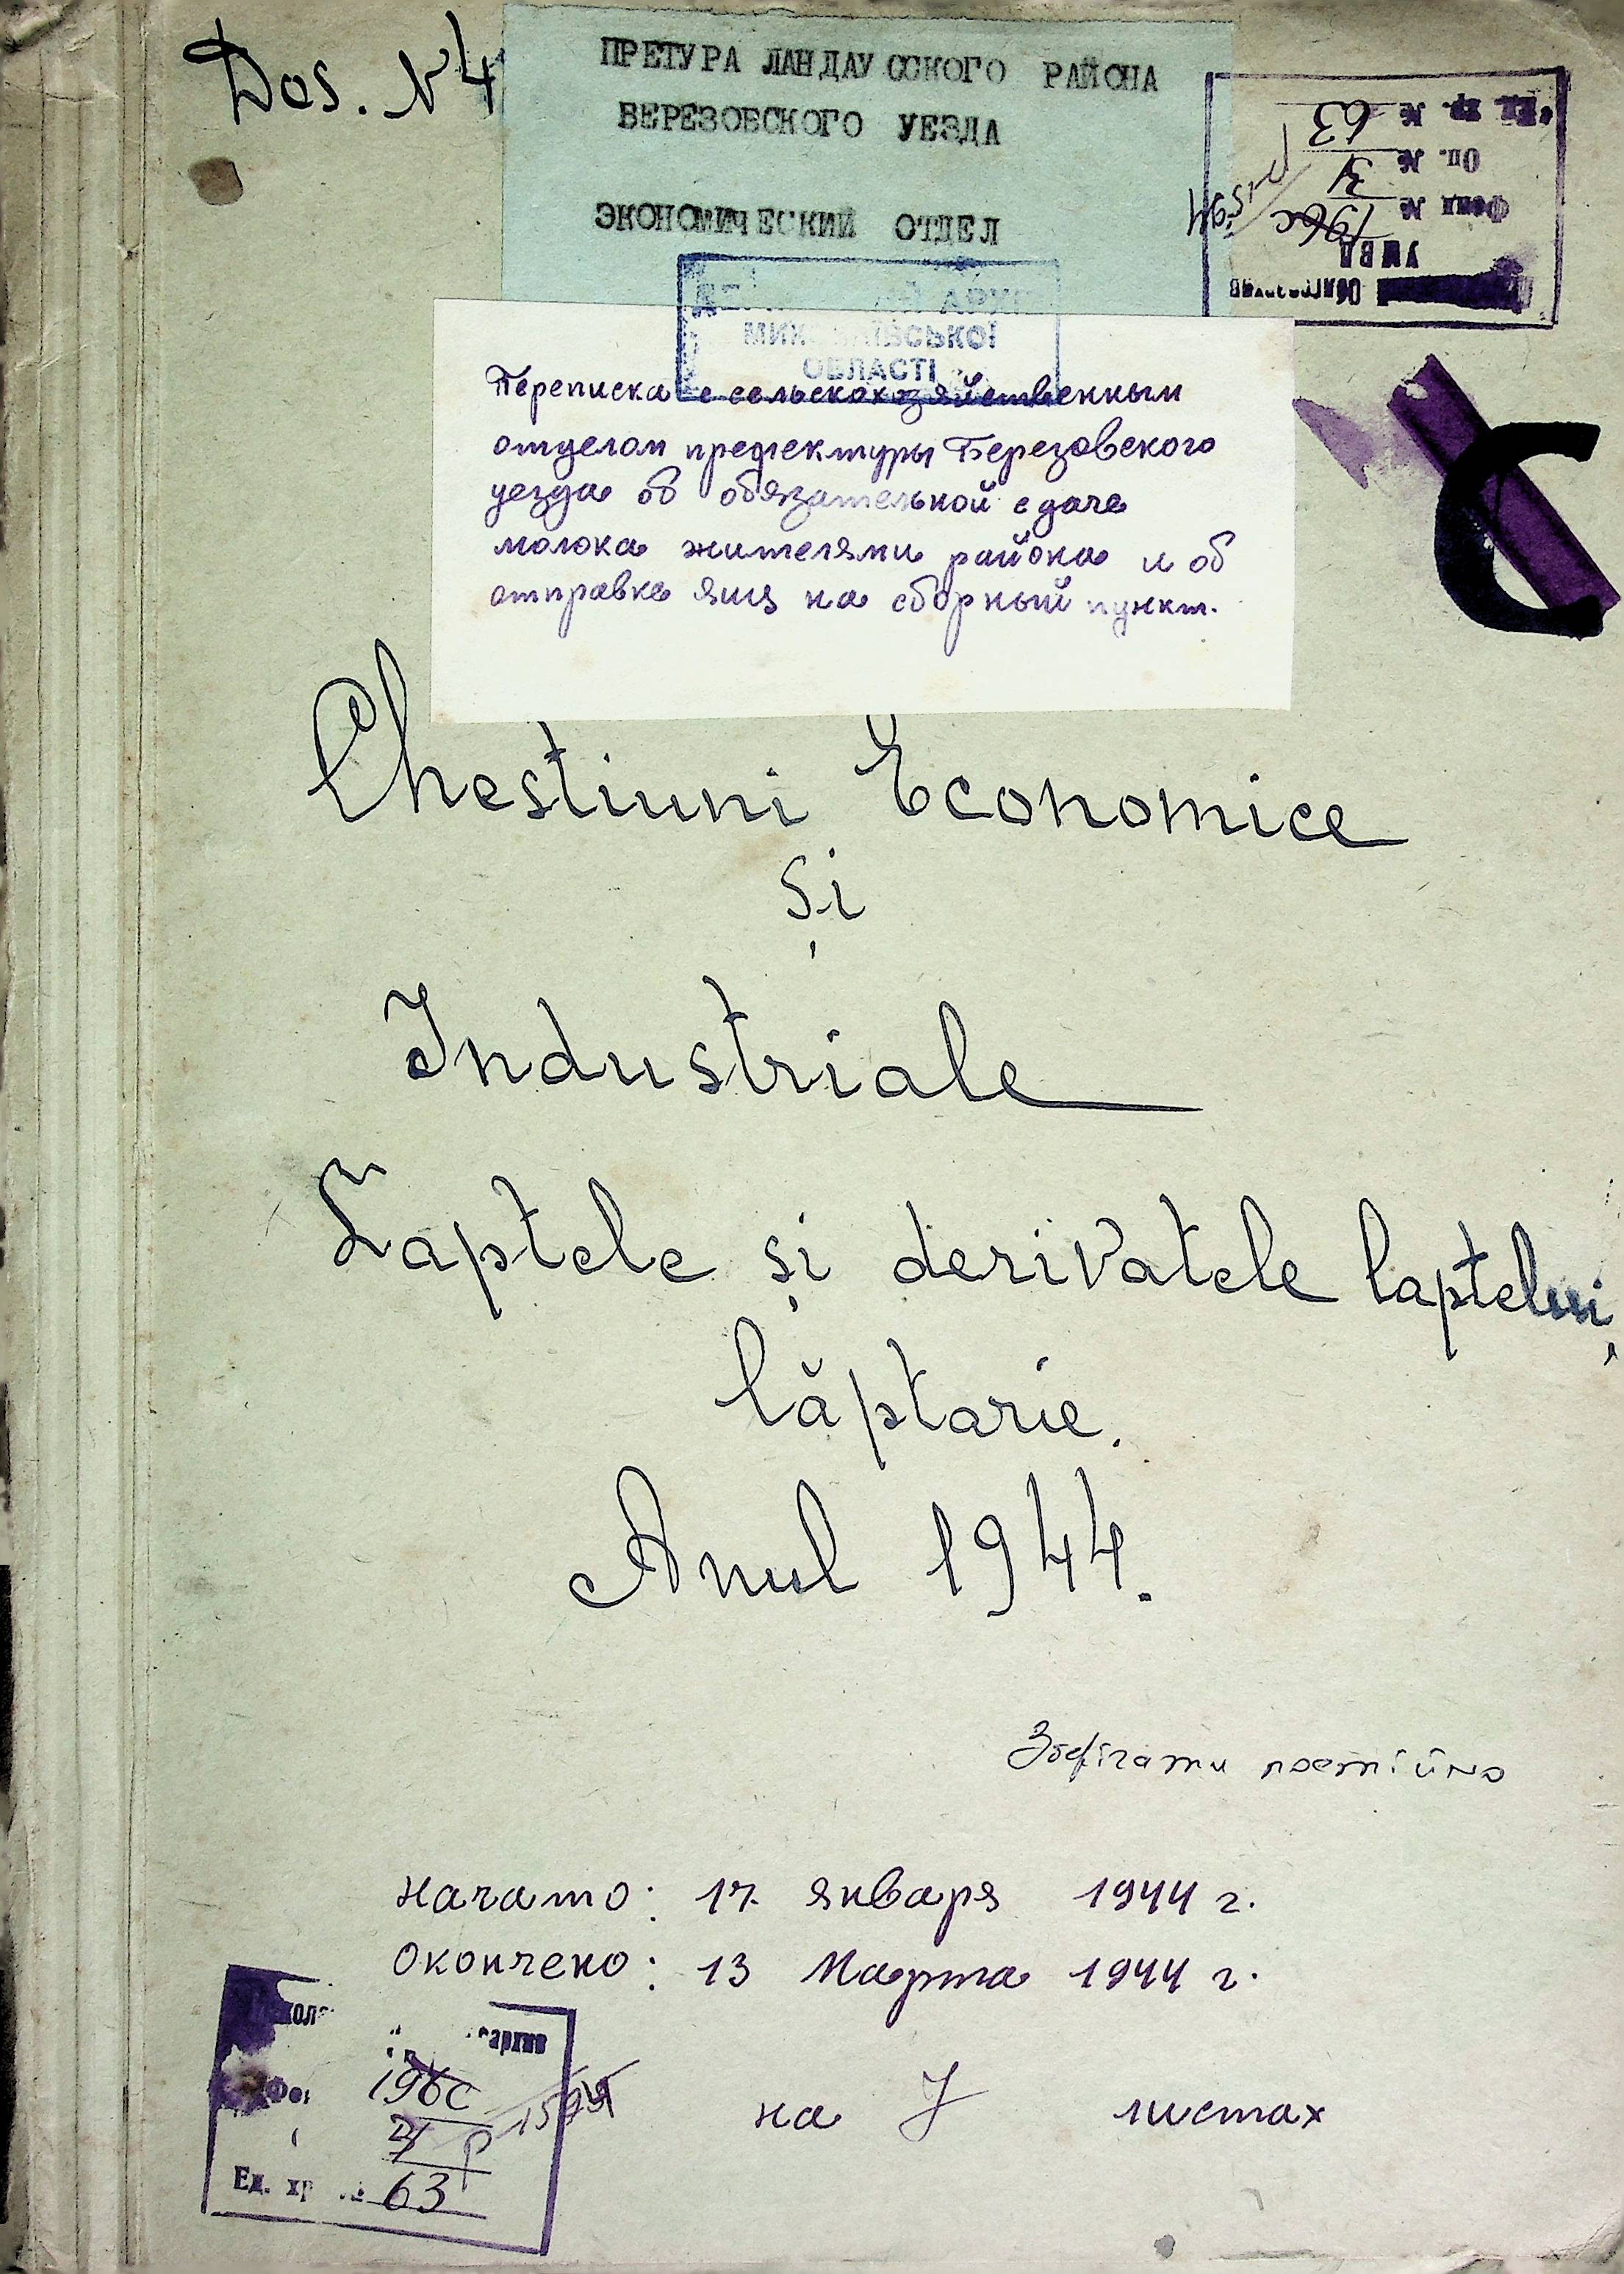 Dos. N 4
ПРЕТУРА ЛАНДАУССКОГО РАЙОНА
БЕРЕЗОВСКОГО УЕЗДА
ЭКОНОМИЧЕСКИЙ ОТДЕЛ
УМВД
Фонд № 196с
Оп. № 3
Ед. хр. № 63
МИКОЛАЇВСЬКОЇ
ОБЛАСТІ
Переписка с сельскохозяйственным
отделом префектуры Березовского
уезда об обязательной сдаче
молока жителями района и об
отправке яиц на сборный пункт.
С
Chestiuni Economice
și
Industriale
Laptele și derivatele laptelui,
lăptarie.
Anul 1944.
Зберігати постійно
Начато: 17 января 1944 г.
Окончено: 13 Марта 1944 г.
196с
Ед. хр 63
на 7 листах